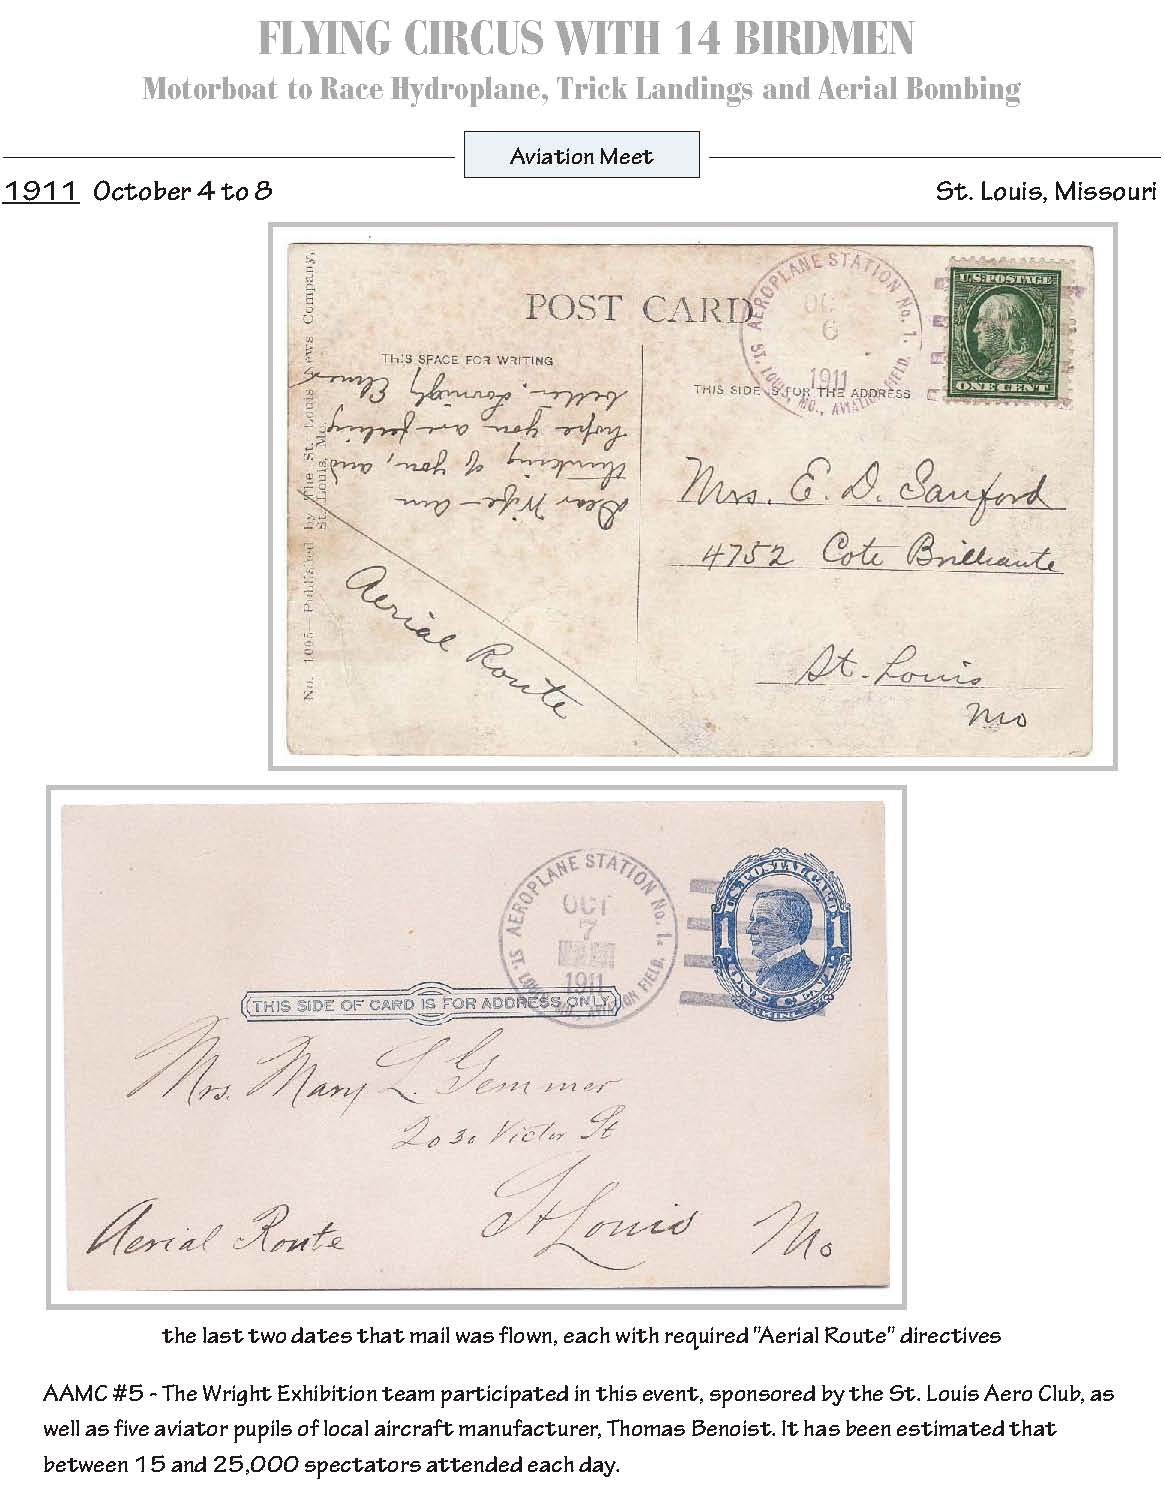 FLYING CIRCUS WITH 14 BIRDMEN
Motorboat to Race Hydroplane, Trick Landings and Aerial Bombing
Aviation Meet
1911 October 4 to 8
St. Louis, Missouri
No. 1095—Published by The St. Louis News Company,
St. Louis, Mo.
POST CARD
THIS SPACE FOR WRITING
THIS SIDE IS FOR THE ADDRESS
AEROPLANE STATION No. 1.
OCT
6
1911
ST. LOUIS, MO., AVIATION FIELD.
U.S. POSTAGE
ONE CENT
Dear Wife – am
thinking of you, and
hope you are feeling
better. Lovingly Elmer
Aerial Route
Mrs. E. D. Sanford
4752 Cote Brilleante
St. Louis
Mo
AEROPLANE STATION No. 1.
OCT
7
1911
ST. LOUIS, MO., AVIATION FIELD.
U.S. POSTAL CARD
1 1
ONE CENT
McKINLEY
THIS SIDE OF CARD IS FOR ADDRESS ONLY
Mrs. Mary L. Gemmer
2030 Victor St
St Louis Mo
Aerial Route
the last two dates that mail was flown, each with required "Aerial Route" directives
AAMC #5 - The Wright Exhibition team participated in this event, sponsored by the St. Louis Aero Club, as
well as five aviator pupils of local aircraft manufacturer, Thomas Benoist. It has been estimated that
between 15 and 25,000 spectators attended each day.